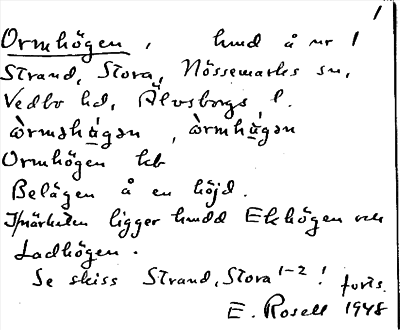 1
Ormhögen, hmd å nr 1
Strand, Stora, Nössemarks sn,
Vedbo hd, Älvsborgs l.
òrməhá̱gən , òrmhá̱gən
Ormhögen kb
Belägen å en höjd.
I närheten ligger hmdd Ekhögen och
Ladhögen.
Se skiss Strand, Stora 1-2! forts.
E. Rosell 1948